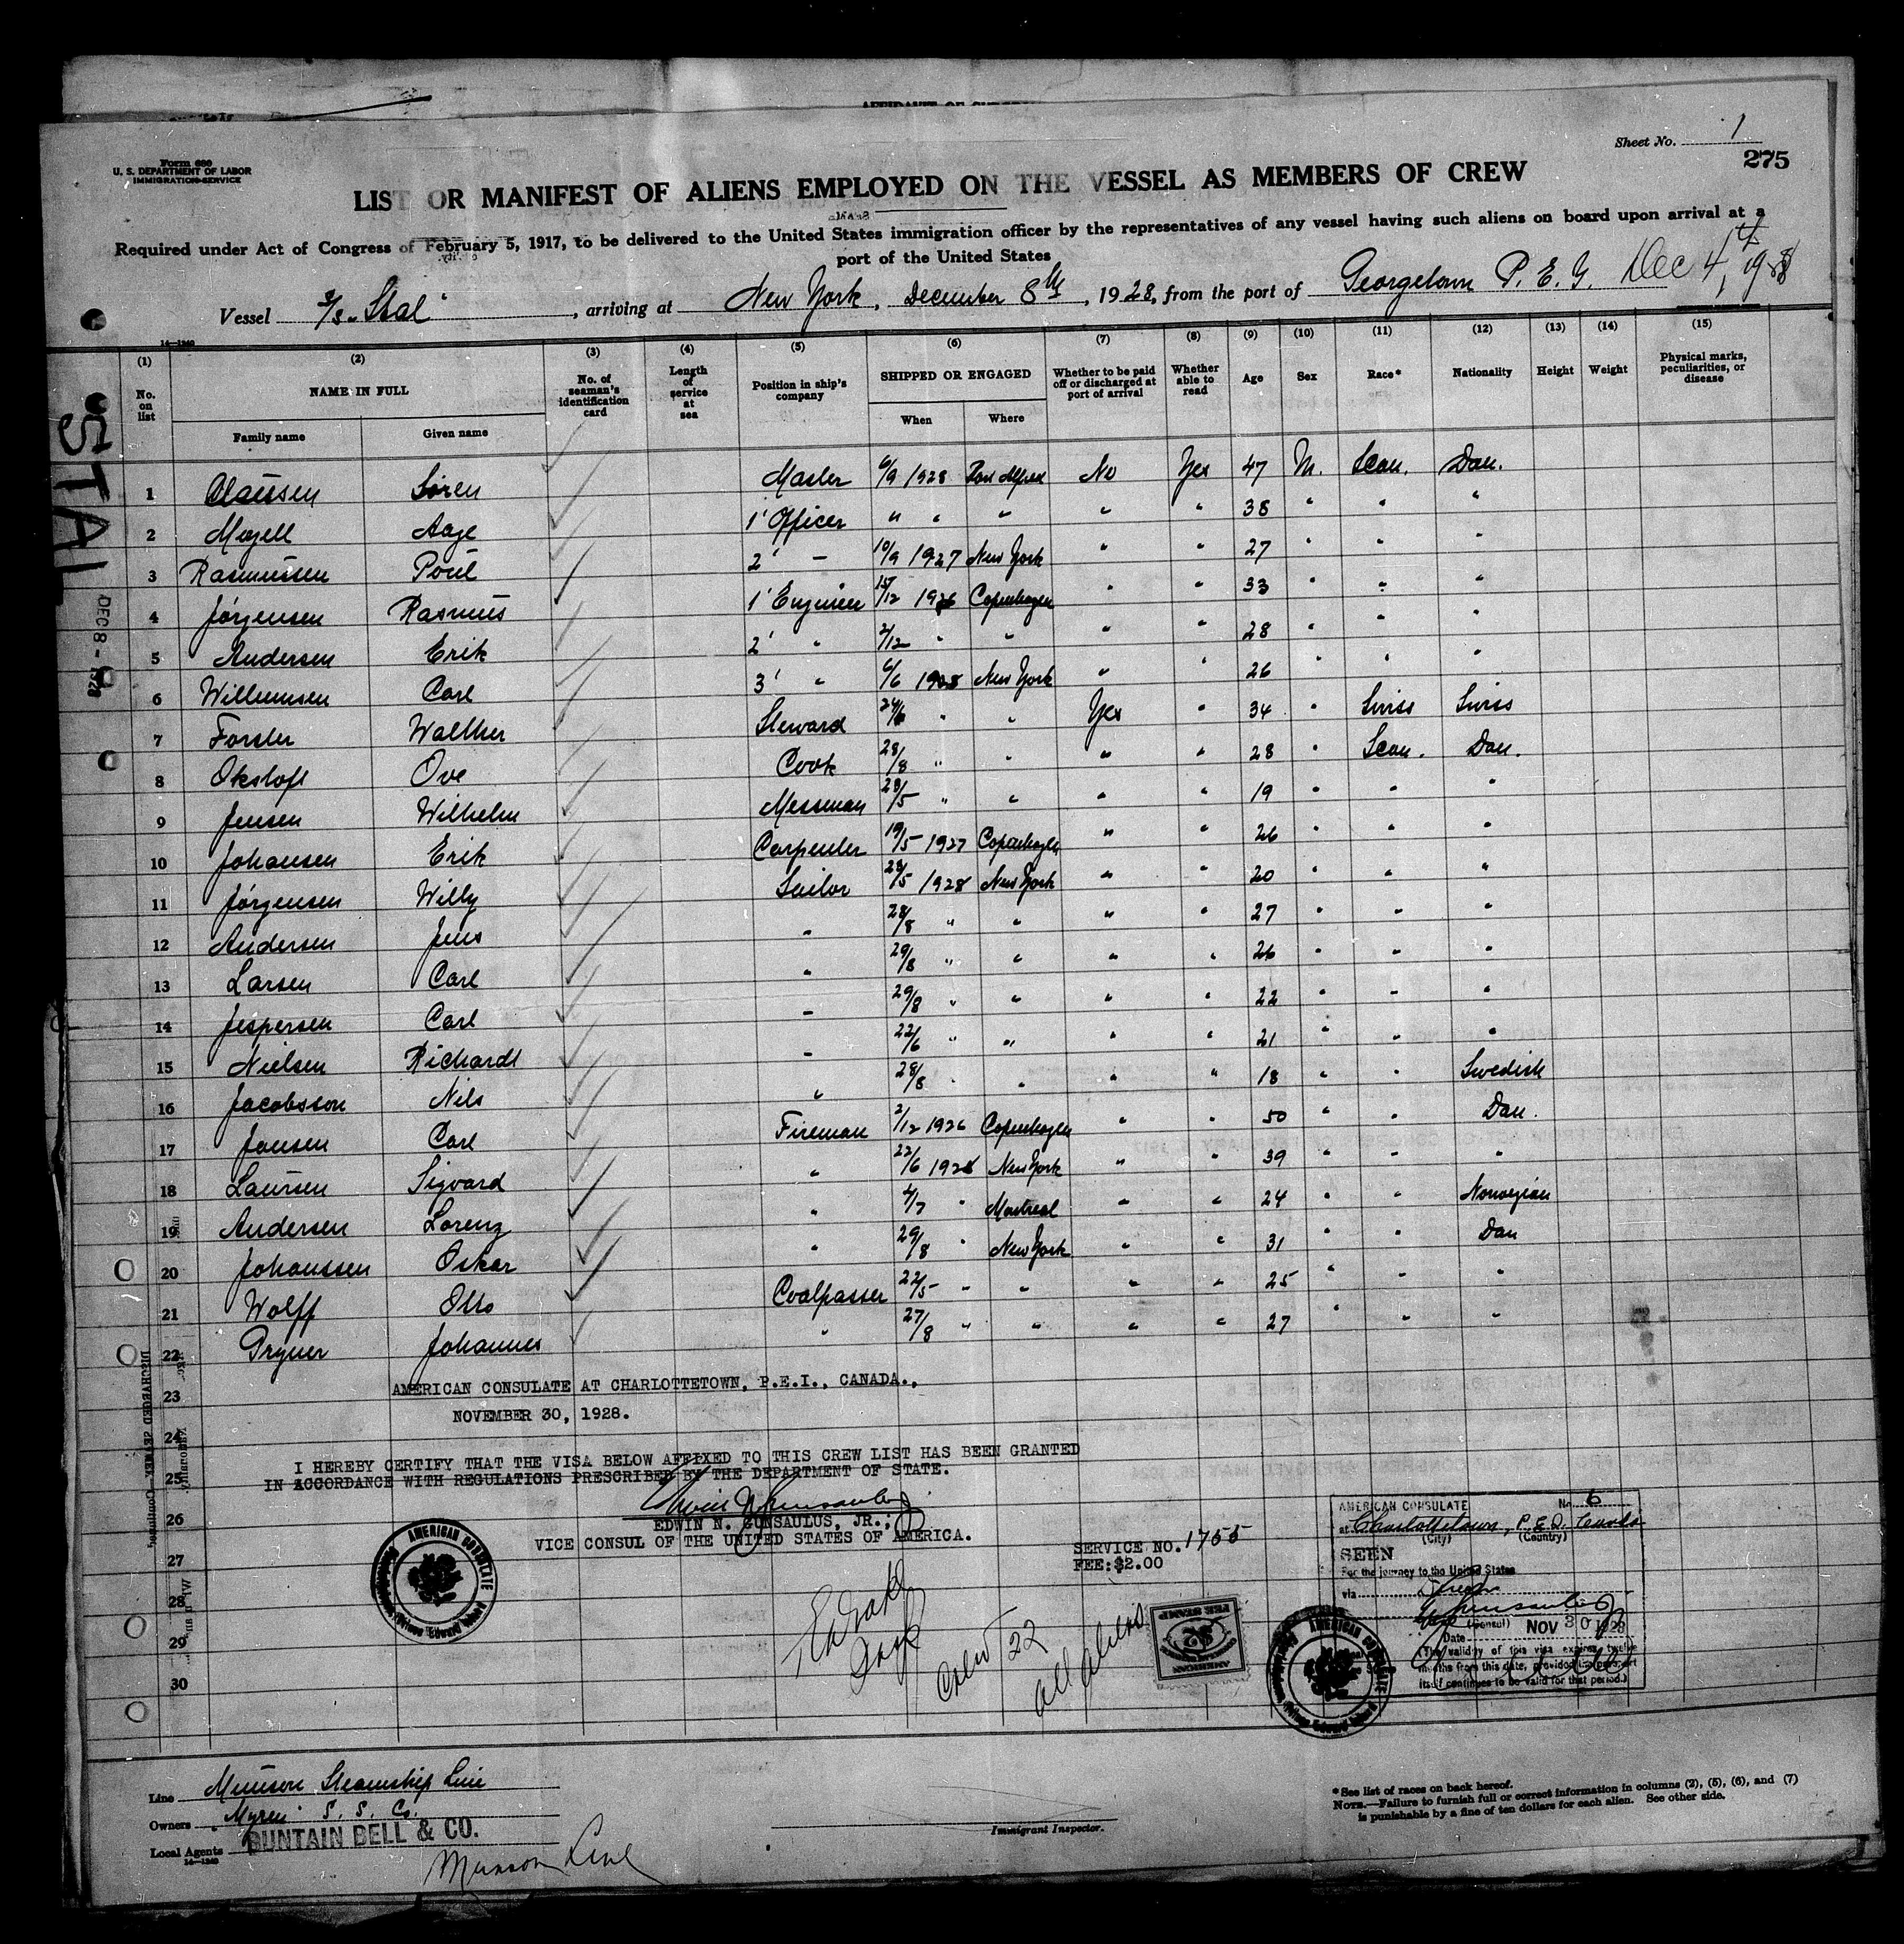 Sheet No. 1
275
Form 680
U. S. DEPARTMENT OF LABOR
IMMIGRATION SERVICE
LIST OR MANIFEST OF ALIENS EMPLOYED ON THE VESSEL AS MEMBERS OF CREW
Required under Act of Congress of February 5, 1917, to be delivered to the United States immigration officer by the representatives of any vessel having such aliens on board upon arrival at a
port of the United States
Vessel S/S "Stal", arriving at New York, December 8th, 1928, from the port of Georgetown P. E. I. Dec 4, 1928
STAL
DEC 8 - 1928
(1) (2) (3) (4) (5) (6) (7) (8) (9) (10) (11) (12) (13) (14) (15)
No. on list NAME IN FULL No. of seaman's identification card Length of service at sea Position in ship's company SHIPPED OR ENGAGED Whether to be paid off or discharged at port of arrival Whether able to read Age Sex Race* Nationality Height Weight Physical marks, peculiarities, or disease
Family name Given name When Where
1 Claussen Sören Master 6/9 1928 Port Alfred No Yes 47 M. Scan. Dan.
2 Meyell Aage 1' Officer " " " " " 38 " " "
3 Rasmussen Poul 2' — 10/9 1927 New York " " 27 " " "
4 Jørgensen Rasmus 1' Engineer 15/12 1926 Copenhagen " " 33 " " "
5 Andersen Erik 2' " 2/12 " " " " 28 " " "
6 Willumsen Carl 3' " 6/6 1928 New York " " 26 " " "
7 Forster Walther Steward 24/6 " " Yes " 34 " Swiss Swiss
8 Okstoft Ove Cook 28/8 " " " " 28 " Scan. Dan.
9 Jensen Wilhelm Messman 23/5 " " " " 19 " " "
10 Johansen Erik Carpenter 19/5 1927 Copenhagen " " 26 " " "
11 Jørgensen Willy Sailor 23/5 1928 New York " " 20 " " "
12 Andersen Jens " 28/8 " " " " 27 " " "
13 Larsen Carl " 29/8 " " " " 26 " " "
14 Jespersen Carl " 29/8 " " " " 22 " " "
15 Nielsen Richardt " 22/6 " " " " 21 " " "
16 Jacobsson Nils " 28/8 " " " " 18 " " Swedish
17 Jansen Carl Fireman 2/12 1926 Copenhagen " " 50 " " Dan.
18 Laursen Sigvard " 22/6 1928 New York " " 39 " " "
19 Andersen Lorenz " 4/7 " Montreal " " 24 " " Norwegian
20 Johanssen Oskar " 29/8 " New York " " 31 " " Dan
21 Wolff Otto Coalpasser 22/5 " " " " 25 " " "
22 Pryner Johannes " 27/8 " " " " 27 " " "
23
AMERICAN CONSULATE AT CHARLOTTETOWN, P.E.I., CANADA.,
NOVEMBER 30, 1928.
24
I HEREBY CERTIFY THAT THE VISA BELOW AFFIXED TO THIS CREW LIST HAS BEEN GRANTED
25
IN ACCORDANCE WITH REGULATIONS PRESCRIBED BY THE DEPARTMENT OF STATE.
26
EDWIN N. GUNSAULUS, JR.,
VICE CONSUL OF THE UNITED STATES OF AMERICA.
27
28
29
30
SERVICE NO. 1755
FEE: $2.00
AMERICAN CONSULATE
Crew 22
all aliens
FEE STAMP
$2
AMERICAN
AMERICAN CONSULATE No. 6
at Charlottetown, P.E.I. Canada
(City) (Country)
SEEN
For the journey to the United States
via
(Consul)
Date NOV 30 1928
(The validity of this visa expires twelve
months from this date, provided the passport
itself continues to be valid for that period.)
AMERICAN CONSULATE
Line Munson Steamship Line
Owners "Myren" S. S. Co.
Local Agents BUNTAIN BELL & CO.
14—1240
Munson Line
Immigrant Inspector.
*See list of races on back hereof.
NOTE.—Failure to furnish full or correct information in columns (2), (5), (6), and (7)
is punishable by a fine of ten dollars for each alien. See other side.